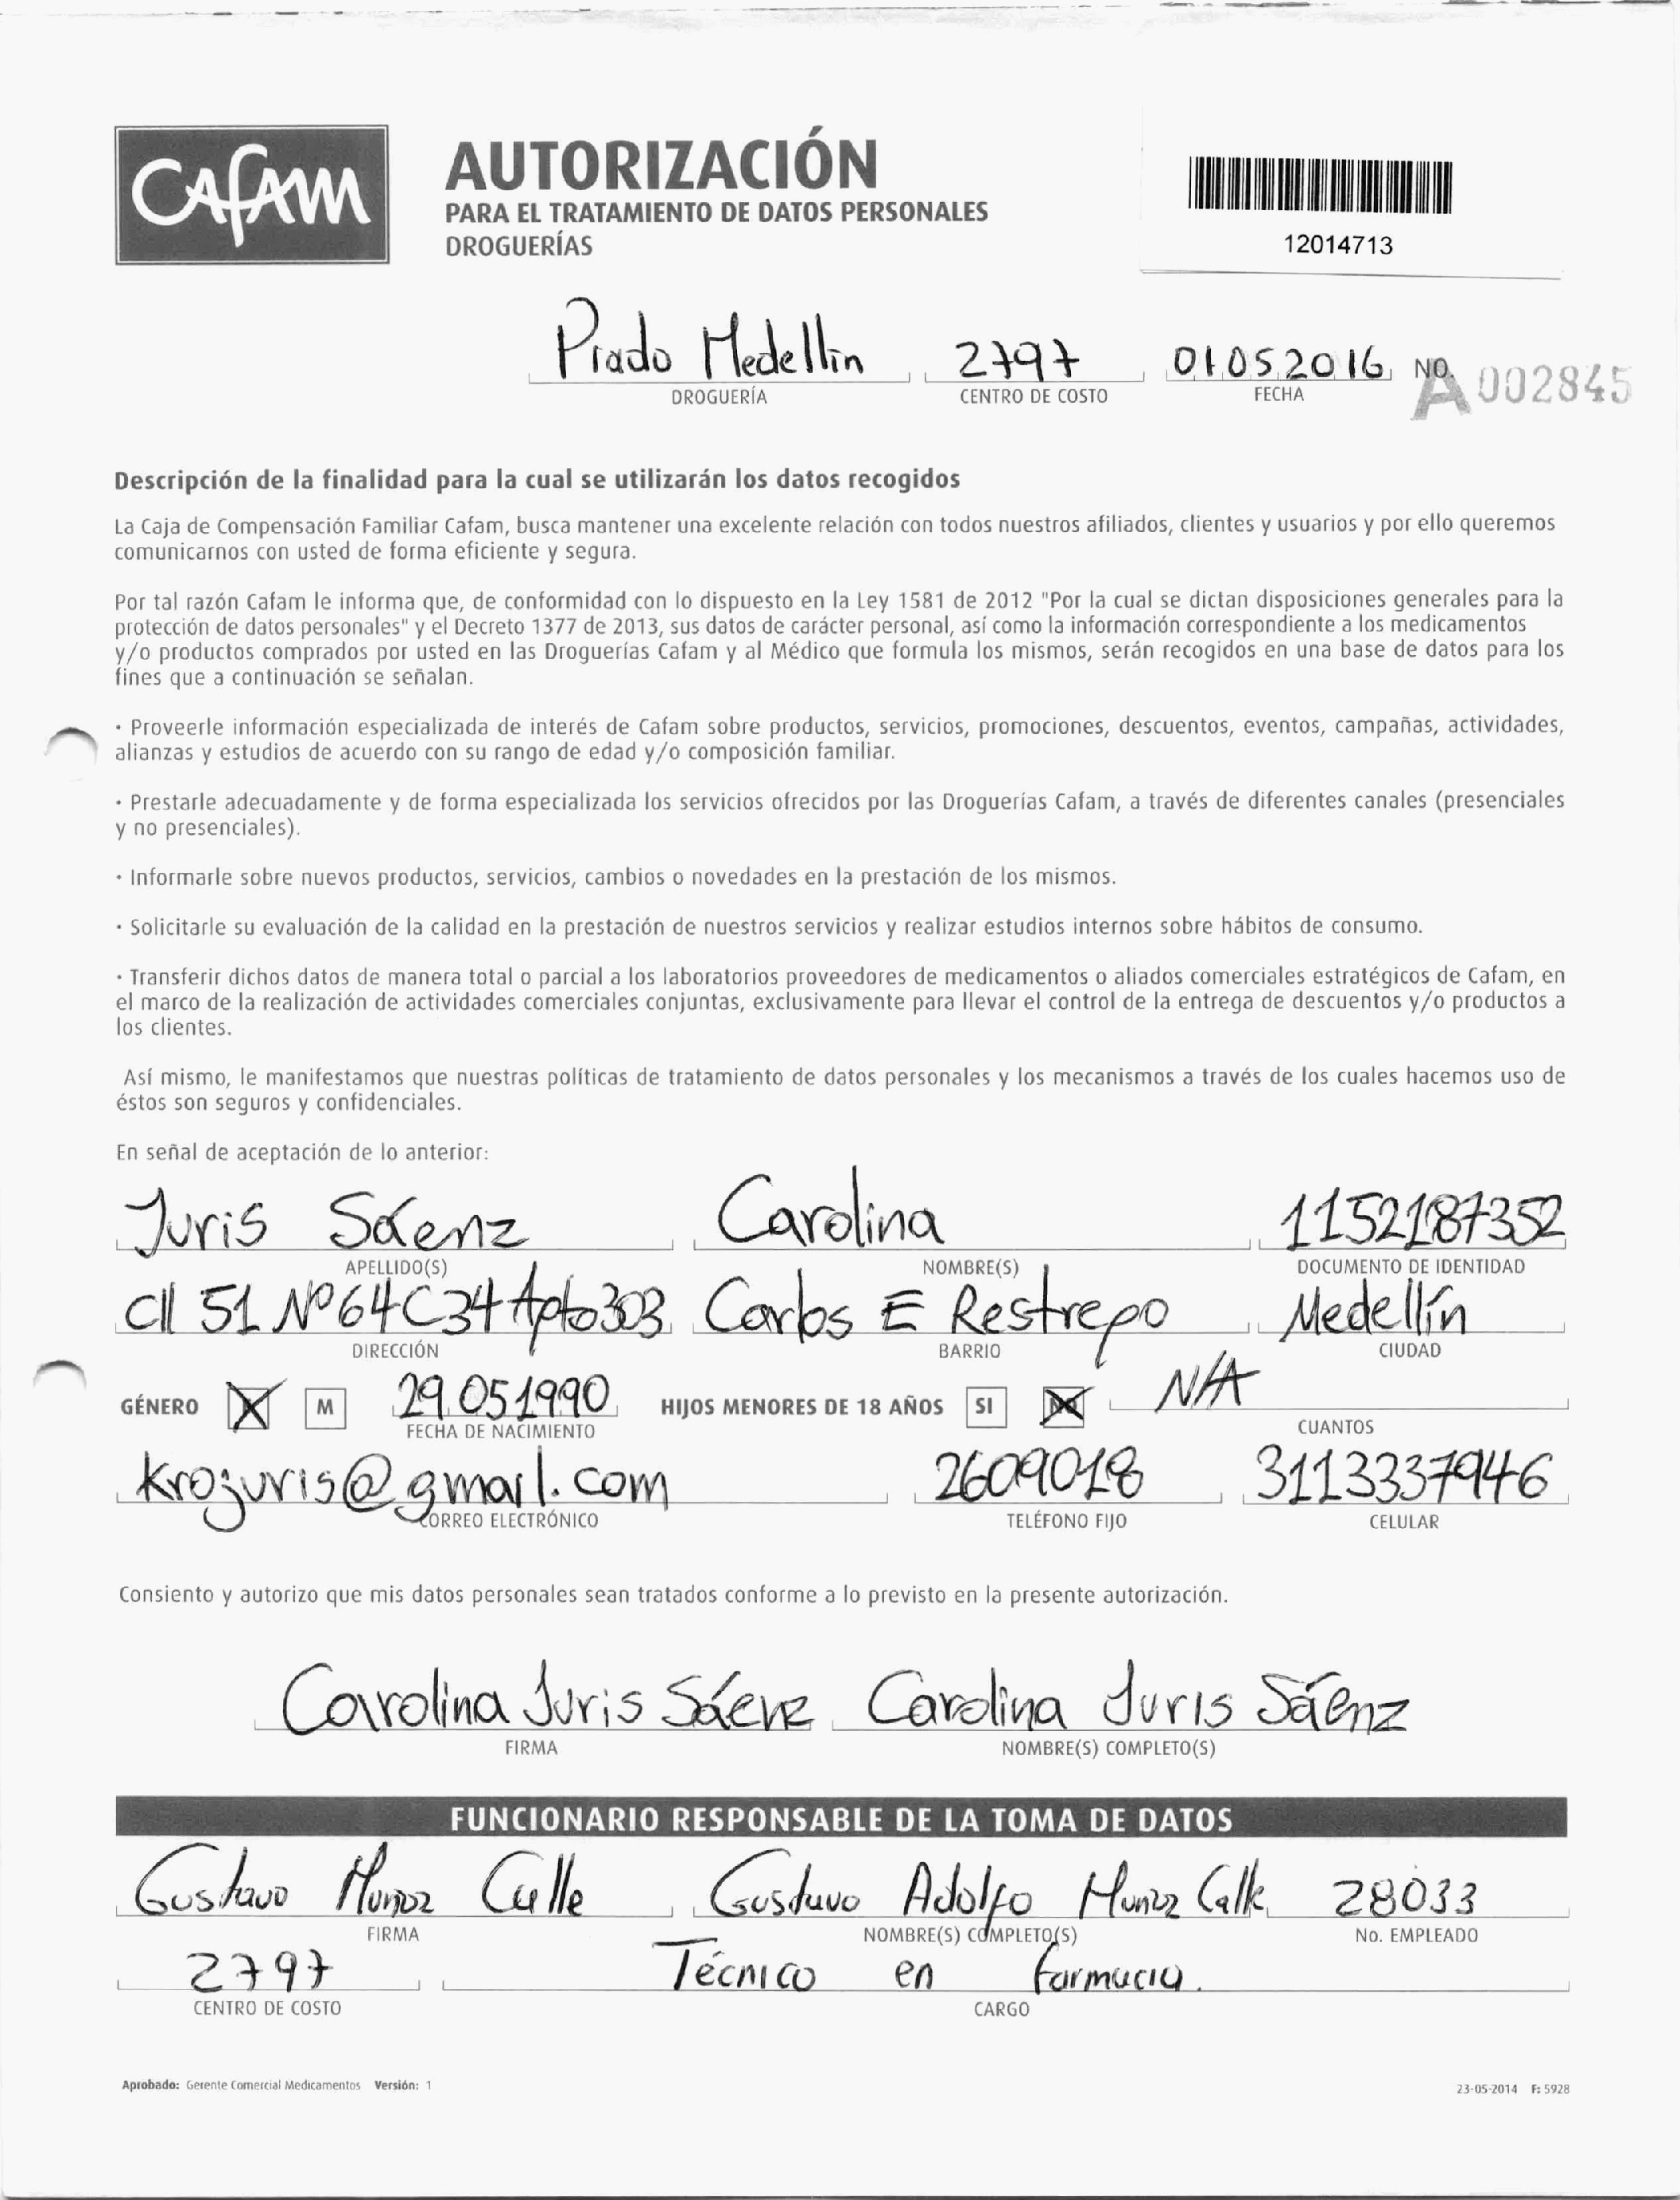 CAFAM
AUTORIZACIÓN
PARA EL TRATAMIENTO DE DATOS PERSONALES
DROGUERÍAS
12014713
Prado Medellin 2797 01052016 NO. A 002845
DROGUERÍA CENTRO DE COSTO FECHA
Descripción de la finalidad para la cual se utilizarán los datos recogidos
La Caja de Compensación Familiar Cafam, busca mantener una excelente relación con todos nuestros afiliados, clientes y usuarios y por ello queremos
comunicarnos con usted de forma eficiente y segura.
Por tal razón Cafam le informa que, de conformidad con lo dispuesto en la Ley 1581 de 2012 "Por la cual se dictan disposiciones generales para la
protección de datos personales" y el Decreto 1377 de 2013, sus datos de carácter personal, así como la información correspondiente a los medicamentos
y/o productos comprados por usted en las Droguerías Cafam y al Médico que formula los mismos, serán recogidos en una base de datos para los
fines que a continuación se señalan.
· Proveerle información especializada de interés de Cafam sobre productos, servicios, promociones, descuentos, eventos, campañas, actividades,
alianzas y estudios de acuerdo con su rango de edad y/o composición familiar.
· Prestarle adecuadamente y de forma especializada los servicios ofrecidos por las Droguerías Cafam, a través de diferentes canales (presenciales
y no presenciales).
· Informarle sobre nuevos productos, servicios, cambios o novedades en la prestación de los mismos.
· Solicitarle su evaluación de la calidad en la prestación de nuestros servicios y realizar estudios internos sobre hábitos de consumo.
· Transferir dichos datos de manera total o parcial a los laboratorios proveedores de medicamentos o aliados comerciales estratégicos de Cafam, en
el marco de la realización de actividades comerciales conjuntas, exclusivamente para llevar el control de la entrega de descuentos y/o productos a
los clientes.
Así mismo, le manifestamos que nuestras políticas de tratamiento de datos personales y los mecanismos a través de los cuales hacemos uso de
éstos son seguros y confidenciales.
En señal de aceptación de lo anterior:
Juris Sáenz Carolina 1152187352
APELLIDO(S) NOMBRE(S) DOCUMENTO DE IDENTIDAD
Cll 51 Nº64C34 Apto303 Carlos E Restrepo Medellín
DIRECCIÓN BARRIO CIUDAD
GÉNERO M 29.05.1990 HIJOS MENORES DE 18 AÑOS SI NO N/A
FECHA DE NACIMIENTO CUANTOS
krojuris@gmail.com 2609018 3113337946
CORREO ELECTRÓNICO TELÉFONO FIJO CELULAR
Consiento y autorizo que mis datos personales sean tratados conforme a lo previsto en la presente autorización.
Carolina Juris Sáenz Carolina Juris Sáenz
FIRMA NOMBRE(S) COMPLETO(S)
FUNCIONARIO RESPONSABLE DE LA TOMA DE DATOS
Gustavo Munoz Calle Gustavo Adolfo Munoz Calle 28033
FIRMA NOMBRE(S) COMPLETO(S) No. EMPLEADO
2797 Técnico en farmacia.
CENTRO DE COSTO CARGO
Aprobado: Gerente Comercial Medicamentos Versión: 1 23-05-2014 F: 5928